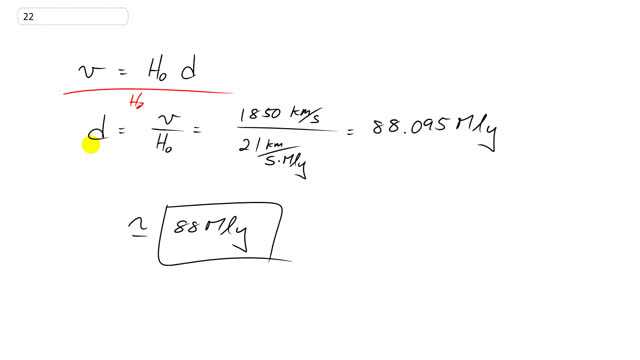 22
v = H₀ d
H₀
d = v/H₀ = 1850 km/s / 21 km/s·Mly = 88.095 Mly
≃ 88 Mly